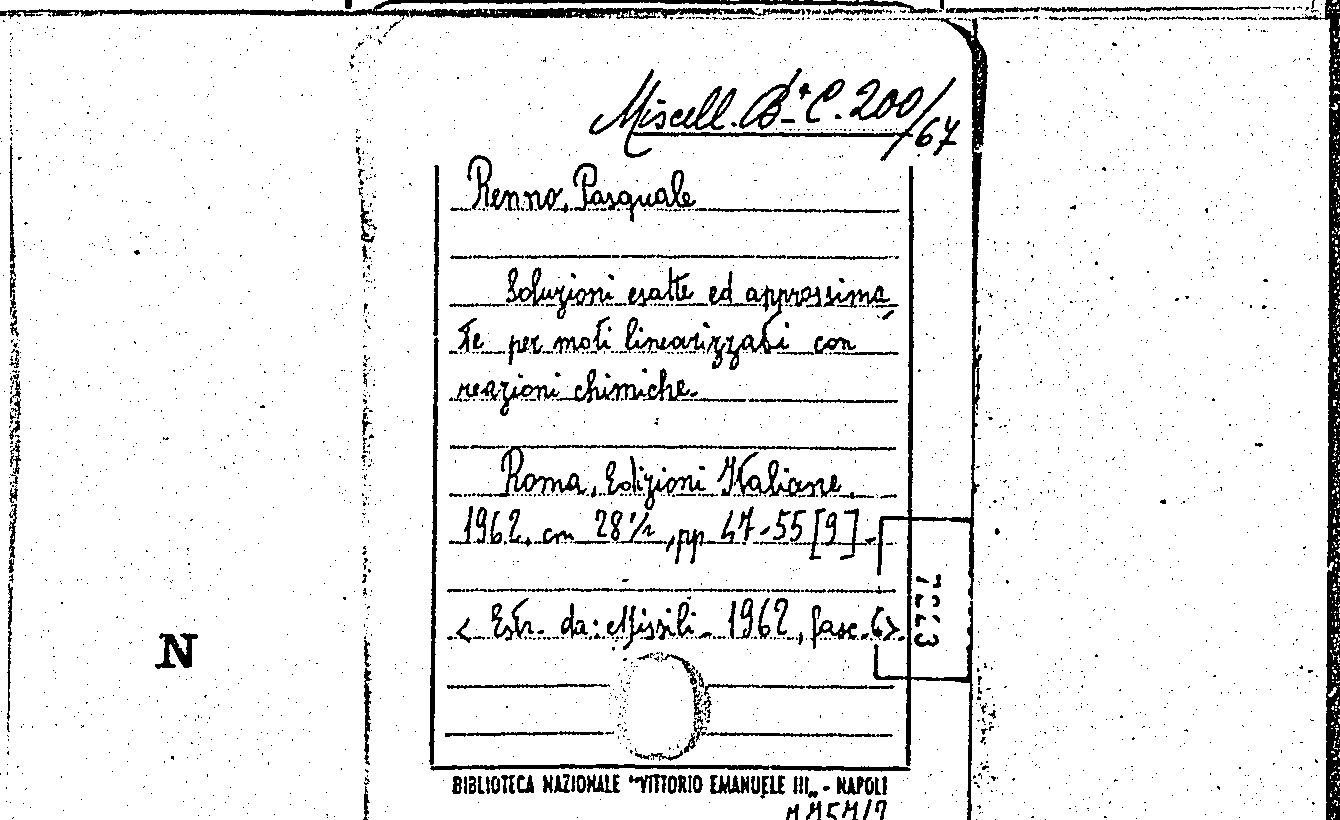 Miscell. B.ª C. 200/67
Renno, Pasquale
Soluzioni esatte ed approssima,
te per moti linearizzati con
reazioni chimiche.
Roma, Edizioni Italiane,
1962, cm 28½, pp 47-55 [9] -
< Estr. da: Missili - 1962, fasc. 6>
N
BIBLIOTECA NAZIONALE "VITTORIO EMANUELE III„ - NAPOLI